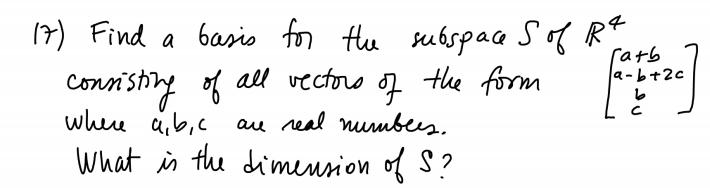 17) Find a basis for the subspace S of R^4
consisting of all vectors of the form [a+b
a-b+2c
b
c]
where a,b,c are real numbers.
What is the dimension of S?